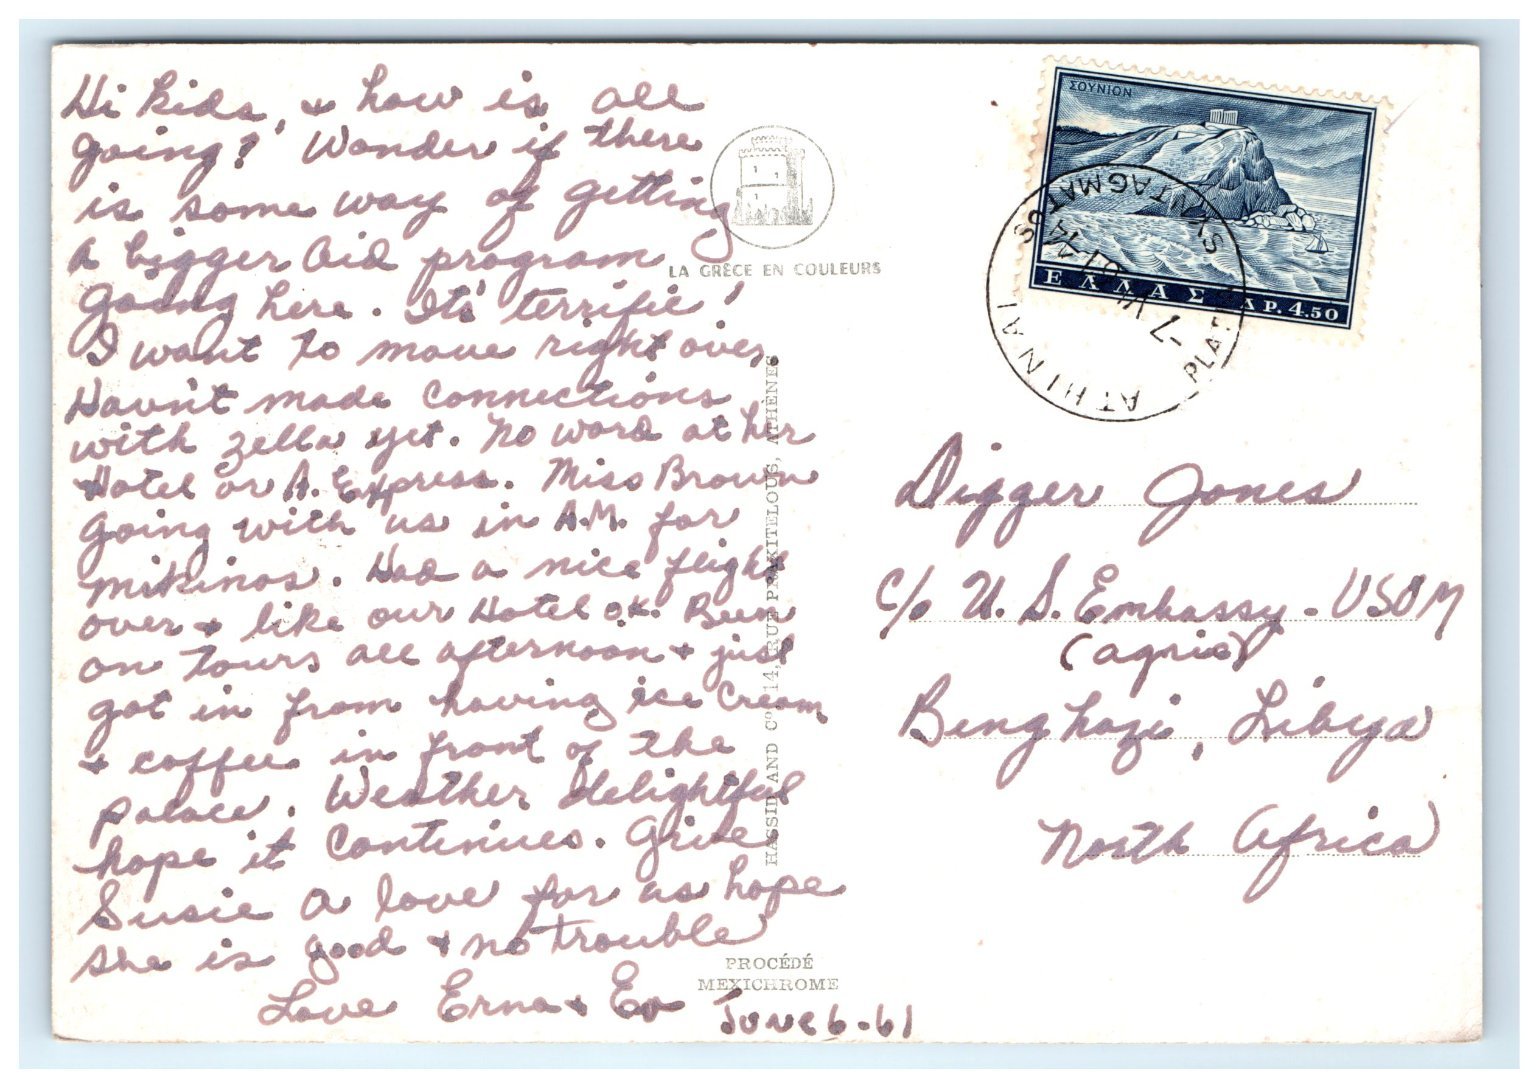 Hi kids, + how is all
going? Wonder if there
is some way of getting
a bigger Aid program
going here. Its' terrific!
I want to move right over,
Havn't made connections
with Zella yet. No word at her
Hotel or A. Express. Miss Brown
going with us in A.M. for
Mikinos. Had a nice flight
over + like our Hotel ok. Been
on tours all afternoon + just
got in from having ice cream
+ coffee in front of the
palace. Weather delightful
hope it continues. Give
Susie a love for us hope
she is good + no trouble
Love Erna + Ev
June 6-61
LA GRÈCE EN COULEURS
HASSID AND Cº 14, RUE PRAXITELOUS, ATHÈNES
PROCÉDÉ
MEXICHROME
ΣΟΥΝΙΟΝ
ΕΛΛΑΣ ΔΡ. 4.50
ATHINAI
PLAT SYNTAGMATOS
-7 VI 61
Digger Jones
c/o U. S. Embassy - USOM
(agric)
Benghazi, Libya
North Africa